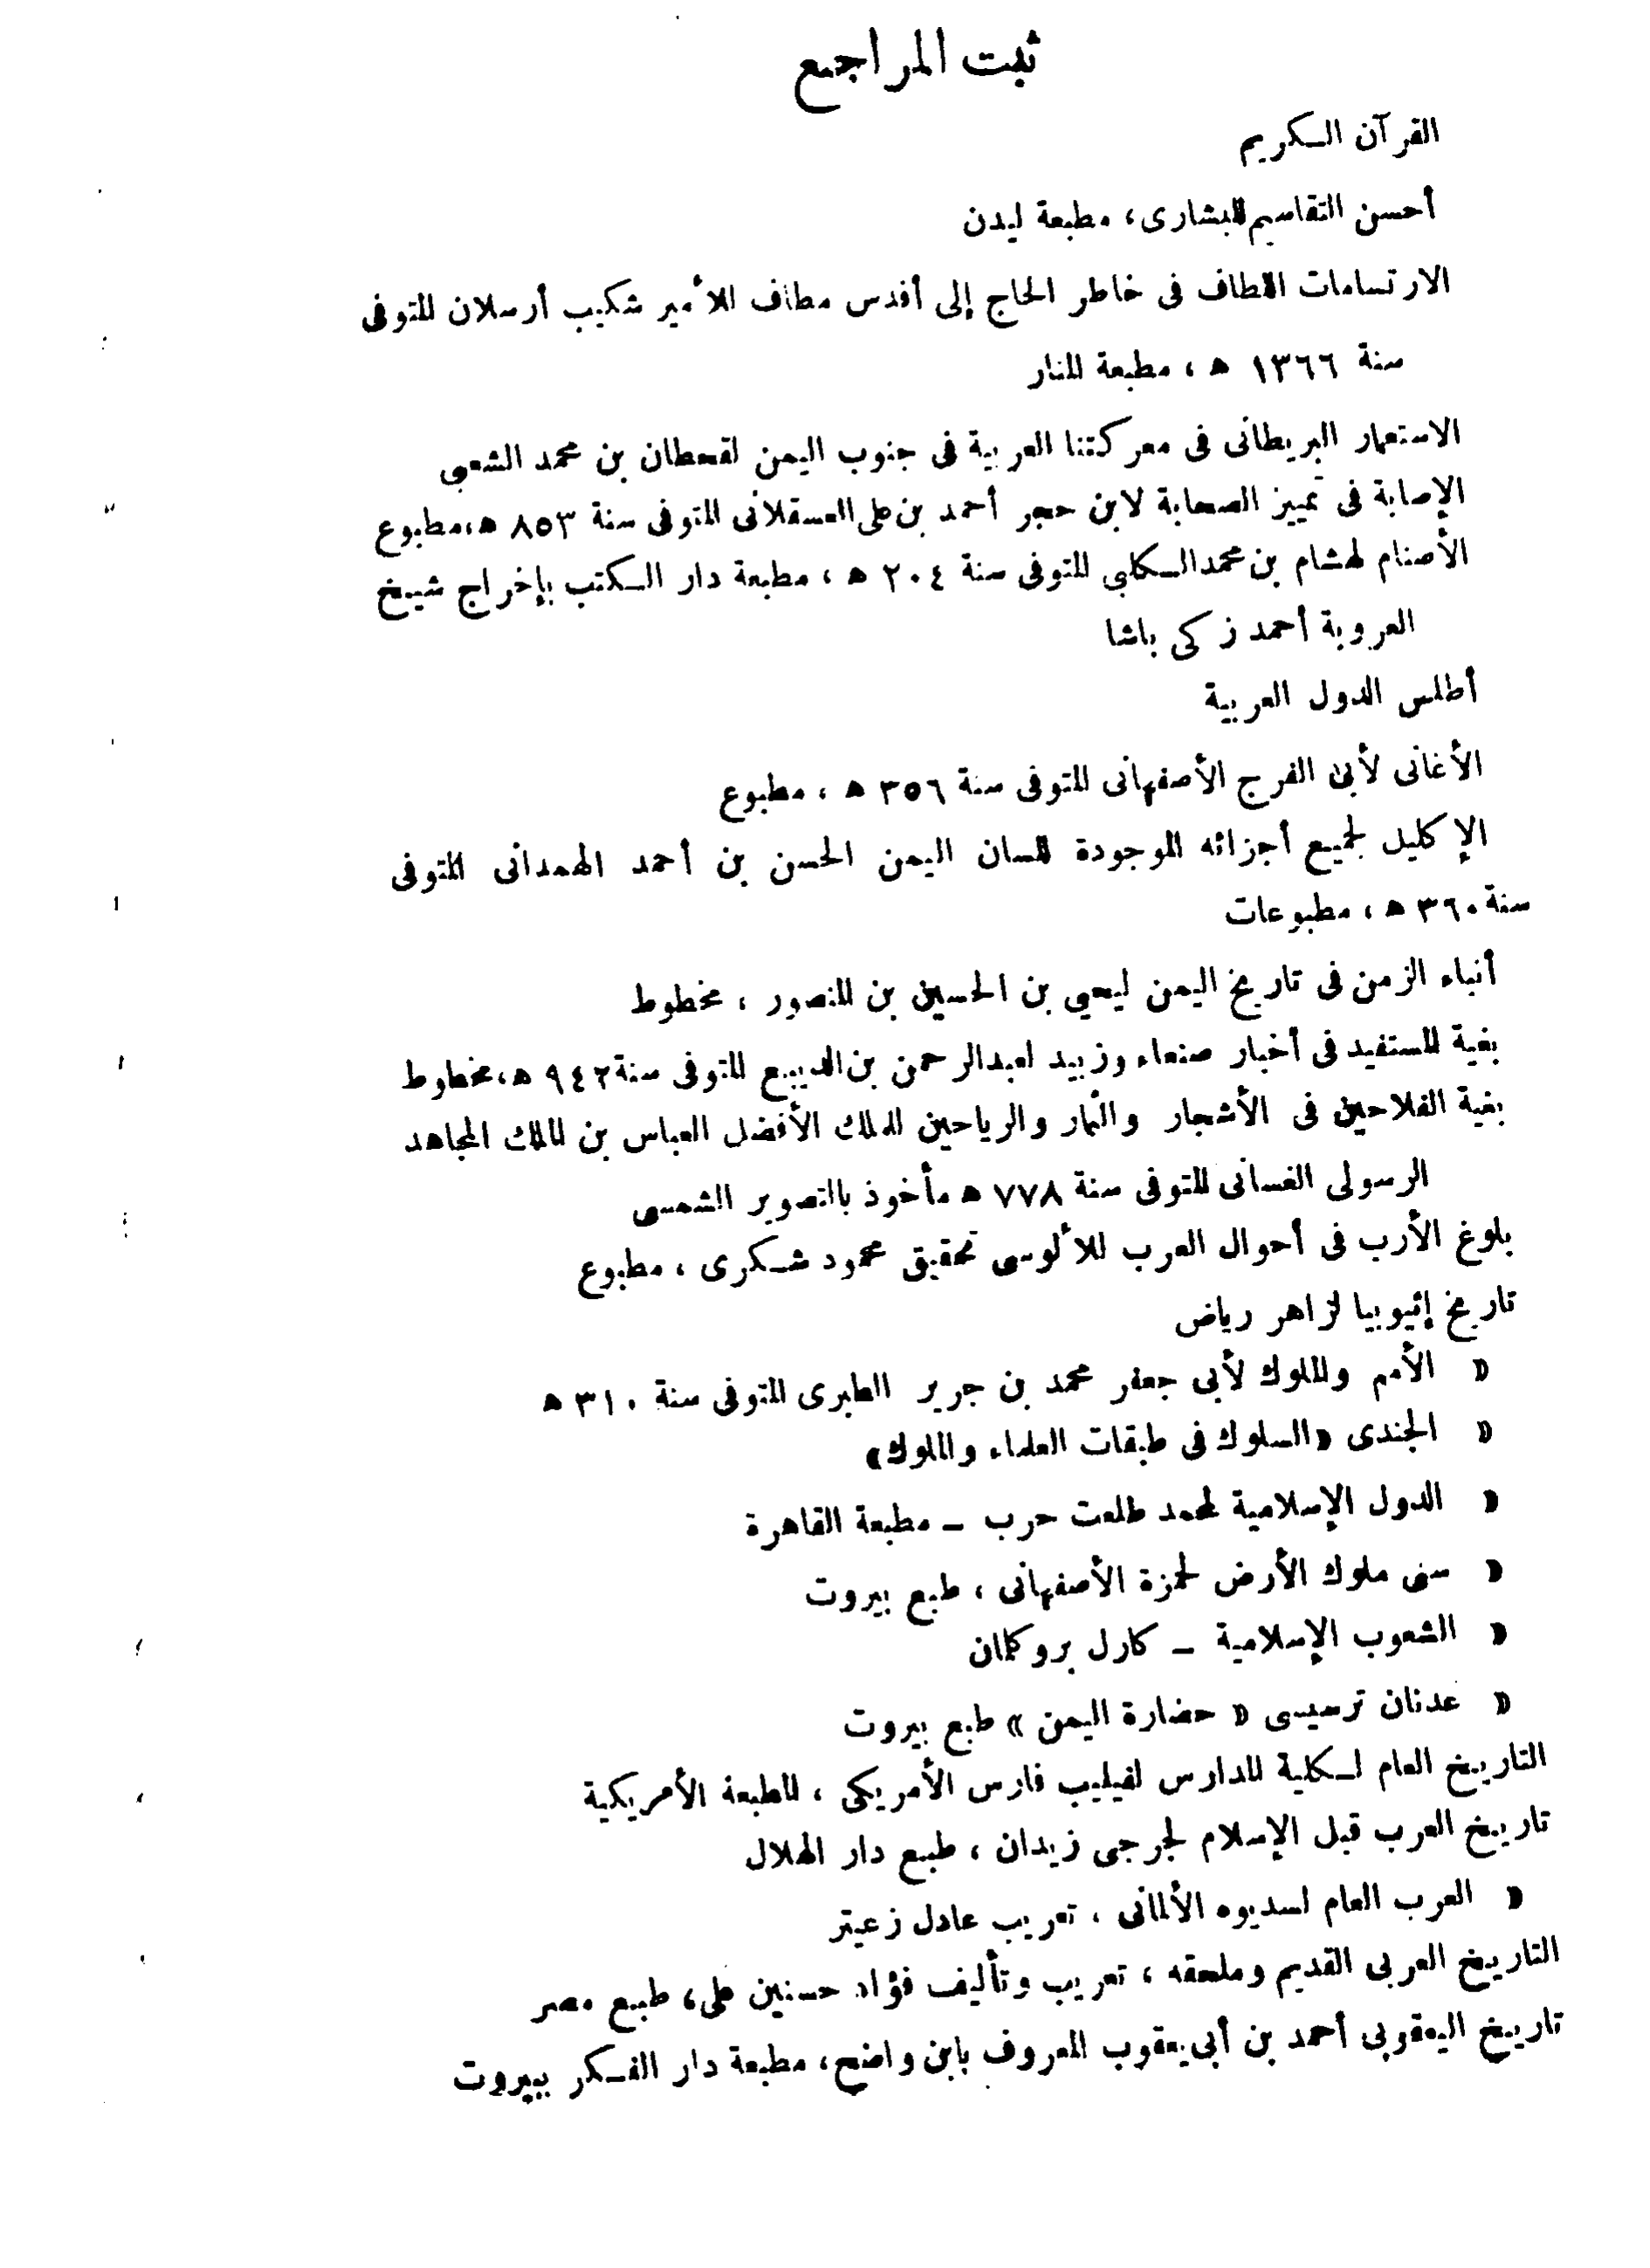 ثبت المراجع
القرآن الكريم
أحسن التقاسيم للبشارى، مطبعة ليدن
الارتسامات اللطاف فى خاطر الحاج إلى أقدس مطاف للأمير شكيب أرسلان المتوفى
سنة ١٣٦٦ ه ، مطبعة المنار
الاستعمار البريطانى فى معركتنا العربية فى جنوب اليمن لقحطان بن محمد الشعبى
الإصابة فى تمييز الصحابة لابن حجر أحمد بن على العسقلانى المتوفى سنة ٨٥٣ ه، مطبوع
الأصنام لهشام بن محمد الكلبى المتوفى سنة ٢٠٤ ه ، مطبعة دار الكتب بإخراج شيخ
العروبة أحمد زكى باشا
أطلس الدول العربية
الأغانى لأبى الفرج الأصفهانى المتوفى سنة ٣٥٦ ه ، مطبوع
الإكليل لجميع أجزائه الموجودة للسان اليمن الحسن بن أحمد الهمدانى المتوفى
سنة ٣٦٠ ه ، مطبوعات
أنباء الزمن فى تاريخ اليمن ليحيي بن الحسين بن المنصور ، مخطوط
بغية المستفيد فى أخبار صنعاء وزبيد لعبدالرحمن بن الديبع المتوفى سنة ٩٤٢ ه، مخطوط
بغية الفلاحين فى الأشجار والثمار والرياحين للملك الأفضل العباس بن الملك المجاهد
الرسولى الغسانى المتوفى سنة ٧٧٨ ه مأخوذ بالتصوير الشمسى
بلوغ الأرب فى أحوال العرب للألوسى تحقيق محمود شكرى ، مطبوع
تاريخ إثيوبيا لزاهر رياض
« الأمم والملوك لأبى جعفر محمد بن جرير الطبرى المتوفى سنة ٣١٠ ه
« الجندى «السلوك فى طبقات العلماء والملوك»
« الدول الإسلامية لمحمد طلعت حرب – مطبعة القاهرة
« سنى ملوك الأرض لحمزة الأصفهانى ، طبع بيروت
« الشعوب الإسلامية – كارل بروكلمان
« عدنان ترسيسى « حضارة اليمن » طبع بيروت
التاريخ العام لكلية المدارس لفيليب فارس الأمريكى ، المطبعة الأمريكية
تاريخ العرب قبل الإسلام لجرجى زيدان ، طبع دار الهلال
« العرب العام لسديوه الألمانى ، تعريب عادل زعيتر
التاريخ العربى القديم وملحقه ، تعريب وتأليف فؤاد حسنين على، طبع مصر
تاريخ اليعقوبى أحمد بن أبى يعقوب المعروف بابن واضح، مطبعة دار الفكر ببيروت